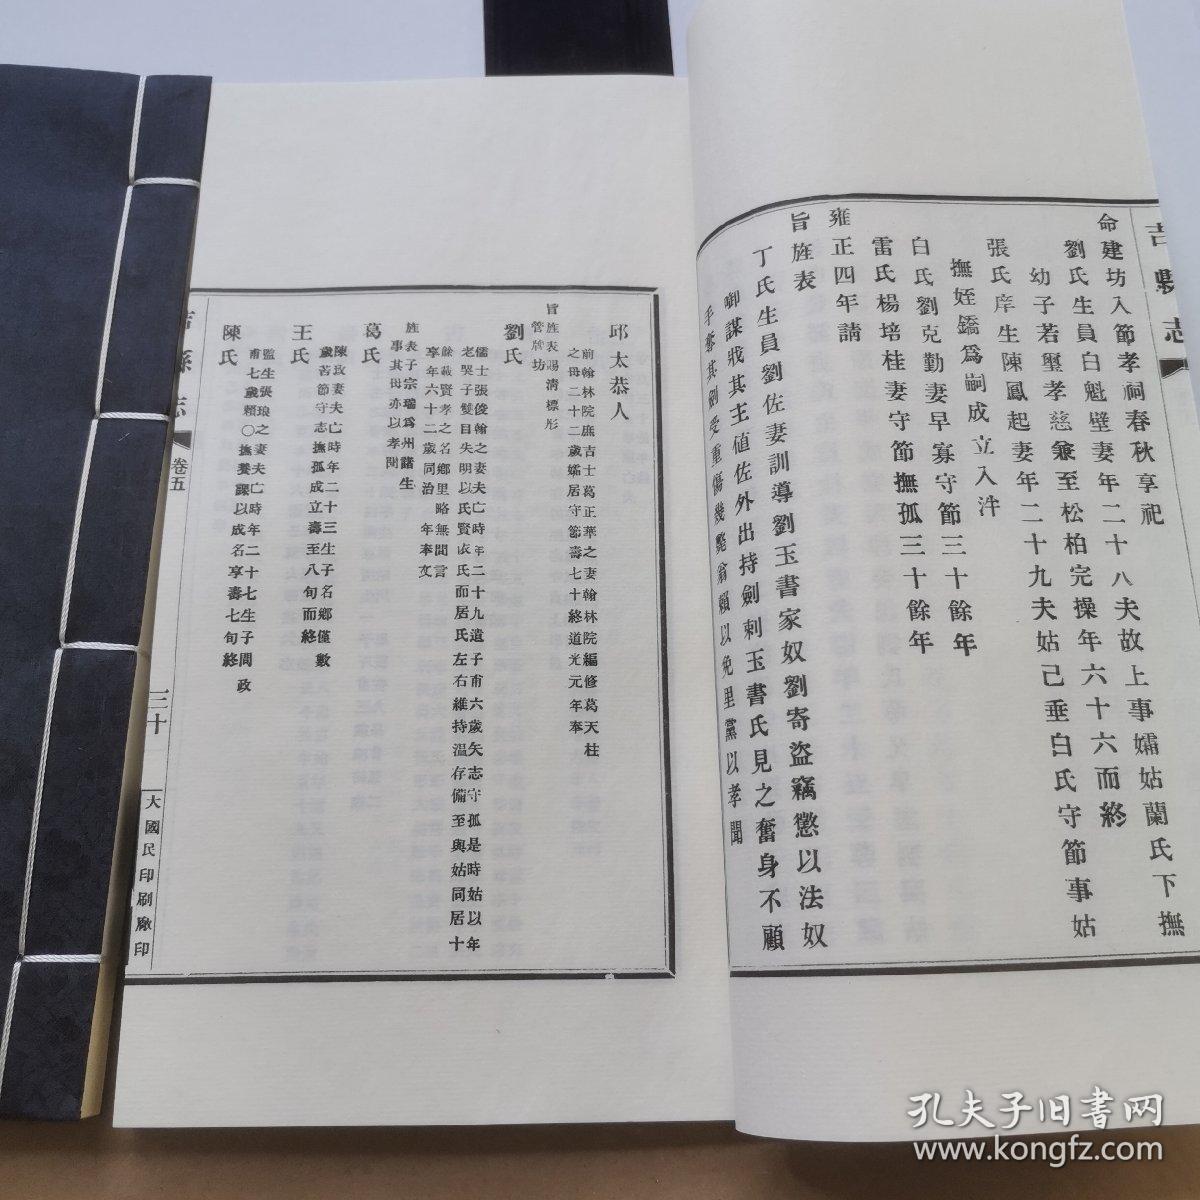 吉縣志
命建坊入節孝祠春秋享祀
劉氏生員白魁壁妻年二十八夫故上事孀姑蘭氏下撫
幼子若璽孝慈兼至松柏完操年六十六而終
張氏庠生陳鳳起妻年二十九夫姑已垂白氏守節事姑
撫姪鐈為嗣成立入泮
白氏劉克勤妻早寡守節三十餘年
雷氏楊培桂妻守節撫孤三十餘年
雍正四年請
旨旌表
丁氏生員劉佐妻訓導劉玉書家奴劉寄盜竊懲以法奴
啣謀戕其主值佐外出持劍刺玉書氏見之奮身不顧
手奪其劍受重傷幾斃翁賴以免里黨以孝聞
邱太恭人
前翰林院庶吉士葛正華之妻翰林院編修葛天柱
之母二十二歲孀居守節壽七十終道光元年奉
旨旌表賜清標彤
管牌坊
劉氏
儒士張俊翰之妻夫亡時年二十九遺子甫六歲矢志守孤是時姑以年
老哭子雙目失明以氏賢依氏而居氏左右維持溫存備至與姑同居十
餘載賢孝之名鄉里略無間言
享年六十二歲同治 年奉文
旌表子宗瑞爲州諸生
事其母亦以孝聞
葛氏
陳政妻夫亡時年二十三生子名鄉僅數
歲苦節守志撫孤成立壽至八旬而終
王氏
監生張琅之妻夫亡時年二十七生子閏政
甫七歲賴○撫養課以成名享壽七旬終
陳氏
吉縣志
卷五
三十
大國民印刷廠印
孔夫子旧书网
www.kongfz.com